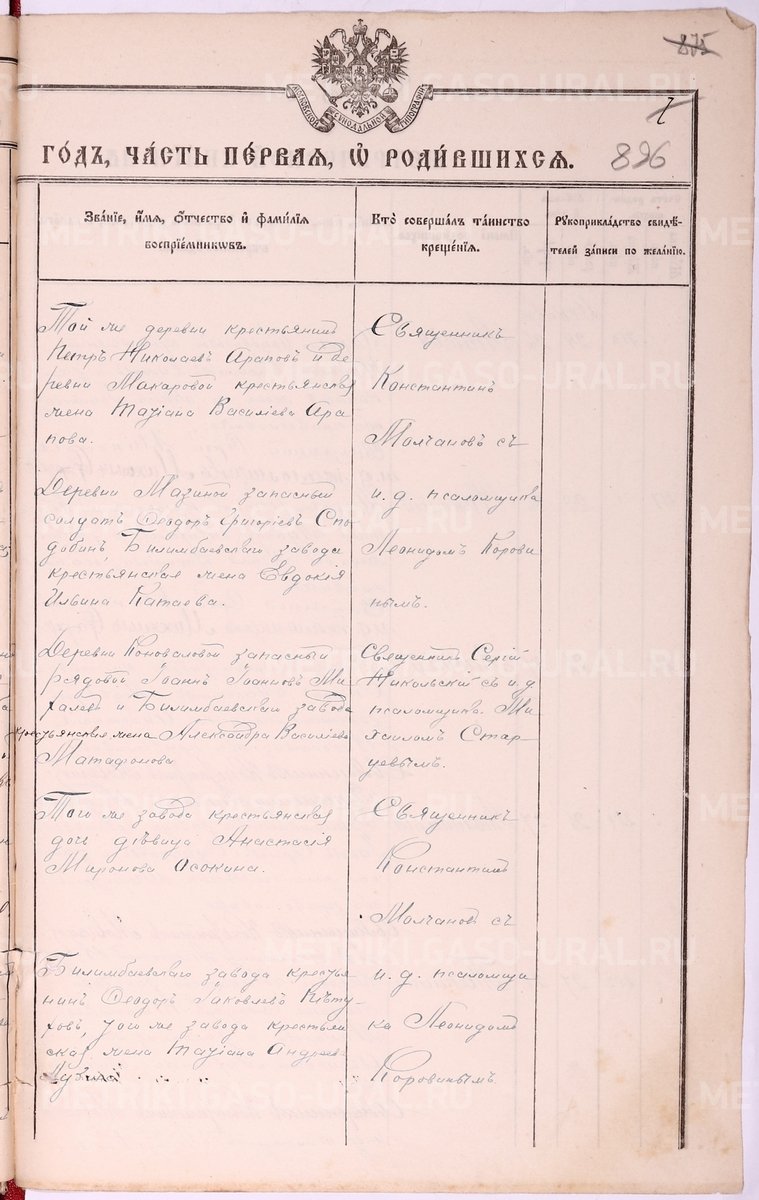 875
7
МОСКОВСКОЙ СѴНОДАЛЬНОЙ ТИПОГРАФІИ
896
ГО́ДЪ, ЧА́СТЬ ПЕ́РВАЯ, Ѡ҆ РОДИ́ВШИХСѦ.
Зва́нїе, и҆́мѧ, ѻ҆́тчество и҆ фами́лїѧ воспрїе́мникѡвъ.
Кто̀ соверша́лъ та́инство креще́нїѧ.
Рꙋкоприкла́дство свидѣ́телей за́писи по жела́нїю.
Той же деревни крестьянинъ
Петръ Николаевъ Араповъ и де
ревни Макаровой крестьянская
жена Татіана Василіева Ара
пова.
Священникъ
Константинъ
Молчановъ съ
и. д. псаломщика
Леонидомъ Корови
нымъ.
Деревни Мазиной запасный
солдатъ Ѳеодоръ Григоріевъ Спо
добинъ, Билимбаевскаго завода
крестьянская жена Евдокія
Ильина Катаева.
Деревни Коноваловой запасный
рядовой Іоаннъ Іоанновъ Ми
халевъ и Билимбаевскаго завода
крестьянская жена Александра Василіева
Матафонова
Священникъ Сергій
Никольскій съ и. д.
псаломщика Ми
хаиломъ Стар
цевымъ.
Того же завода крестьянская
дочь дѣвица Анастасія
Миронова Осокина.
Священникъ
Константинъ
Молчановъ съ
и. д. псаломщи
ка Леонидомъ
Коровинымъ
Билимбаевскаго завода крестья
нинъ Ѳеодоръ Іаковлевъ Пѣту
ховъ, того же завода крестьян
ская жена Татіана Андреева
METRIKI.GASO-URAL.RU